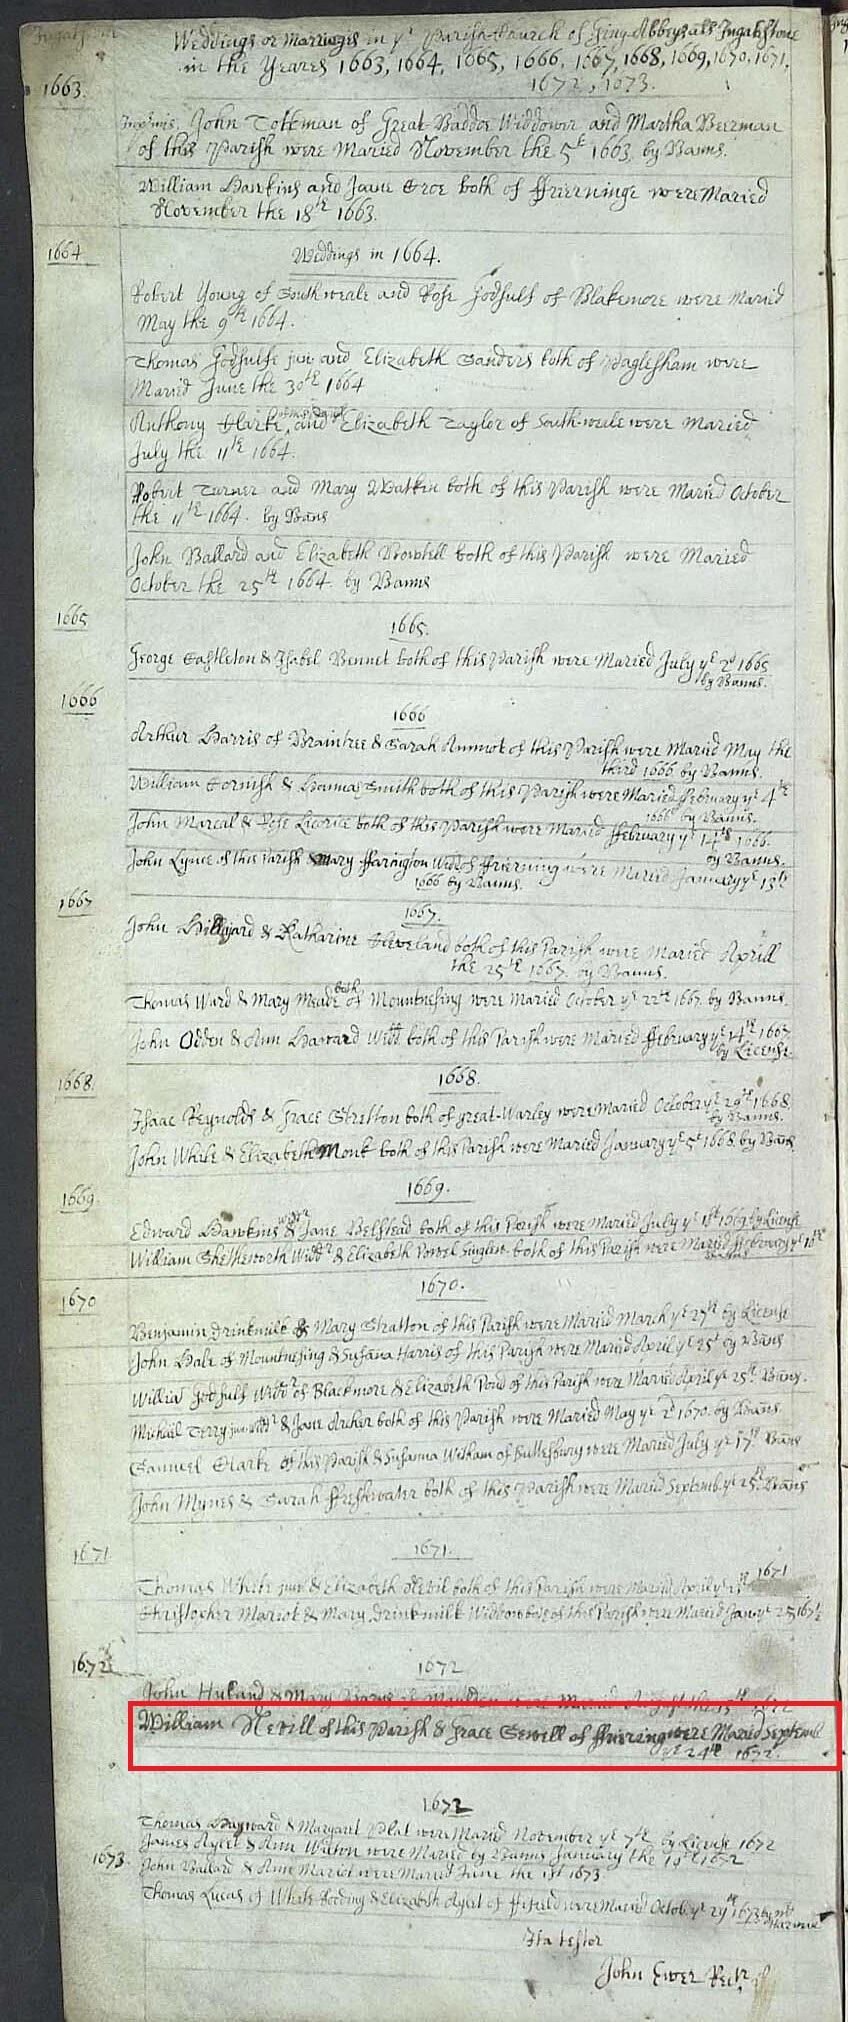 Ingatestone
Weddings or Marriages in ye Parish Church of Ging-Abbey als Ingatestone
in the Yeares 1663, 1664, 1665, 1666, 1667, 1668, 1669, 1670, 1671,
1672, 1673.
1663.
John of Great-Baddow Widdower and Martha Beerman
of this Parish were Maried November the 5th 1663 by Banns.
William Hawkins and Jane both of ffrierninge were Maried
November the 18th 1663.
1664
Weddings in 1664.
Robert Young of Southweale and Rose Godsulf of Blakemore were Maried
May the 9th 1664.
Thomas Godsulfe jun and Elizabeth Sanders both of Paglesham were
Maried June the 30th 1664
Anthony Clarke of this Parish and Elizabeth Taylor of South-weale were Maried
July the 11th 1664.
Robert Turner and Mary Watkin both of this Parish were Maried October
the 11th 1664. by Bans
John Ballard and Elizabeth both of this Parish were Maried
October the 25th 1664. by Banns
1665
1665.
George Castleton & Isabel Bennet both of this Parish were Maried July ye 2d 1665
by Banns.
1666
1666
Arthur Harris of Braintree & Sarah of this Parish were Maried May the
third 1666 by Banns.
William Cornish & Smith both of this Parish were Maried ffebruary ye 4th
1666 by Banns.
John & Rose Licorice both of this Parish were Maried ffebruary ye 14th 1666.
by Banns.
John of this Parish & Mary ffarington Widd of ffrierning were Maried January ye 15th
1666 by Banns.
1667
1667.
John Hilliard & Katharine Cleveland both of this Parish were Maried Aprill
the 25th 1667. by Banns.
Thomas Ward & Mary Meade both of Mountnesing were Maried October ye 22th 1667. by Banns.
John Odden & Ann Haward Widd both of this Parish were Maried ffebruary ye 14th 1667
by License.
1668.
1668.
Isaac Reynolds & Grace Stretton both of great-Warley were Maried October ye 29th 1668.
by Banns.
John White & Elizabeth Monk both of this Parish were Maried January ye 5t 1668. by Bans
1669.
1669.
Edward Hawkins widdr & Jane Belstead both of this Parish were Maried July ye 18th 1669 by License
William Widdr & Elizabeth Powel both of this Parish were Maried ffebruary ye 10th
Banns
1670
1670.
Benjamin Drinkmilk & Mary Stratton of this Parish were Maried March ye 27th by License
John Hale of Mountnesing & Susana Harris of this Parish were Maried April ye 25t by Bans
Willia Godsulf Widdr of Blackmore & Elizabeth Pond of this Parish were Maried April ye 25th. Bans.
Michael Terry jun widdr & Jane Archer both of this Parish were Maried May ye 2d 1670. by Bans
Samuel Clarke of this Parish & Susanna Witham of Buttesbury were Maried July ye 17th Bans
John Mynes & Sarah ffreshwater both of this Parish were Maried Septemb ye 25th. Bans
1671
1671.
Thomas White jun & Elizabeth Nevil both of this Parish were Maried April ye 1671
Christopher Mariot & Mary Drinkmilk Widdow both of this Parish were Maried Janry ye 25 167½
1672
1672
John & Mary of were Maried August the 15th 1672
William Nevill of this Parish & Grace Sewell of ffriering were Maried Septemb
ye 24th 1672.
1672
Thomas Hayward & Margaret Plat were Maried November ye 7th by License 1672
James Aylet & Ann were Maried by Banns January the 19th 1672
1673.
John Ballard & Ann Mariot were Maried June the 1st 1673.
Thomas Lucas of White Rooding & Elizabeth Aylet of ffifield were Maried Octob ye 29th 1673 by
Ita testor
John Ewer Rectr